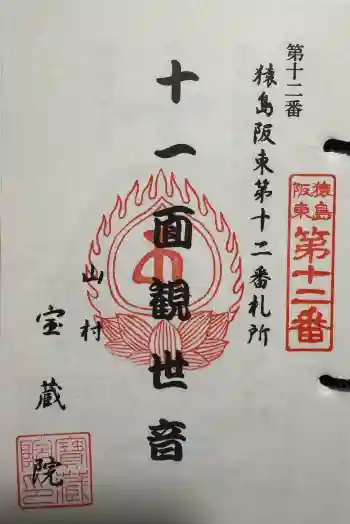 第十二番
猿島阪東第十二番札所
猿島
阪東
第十二番
十一面観世音
山村
宝蔵院
寶蔵
院印